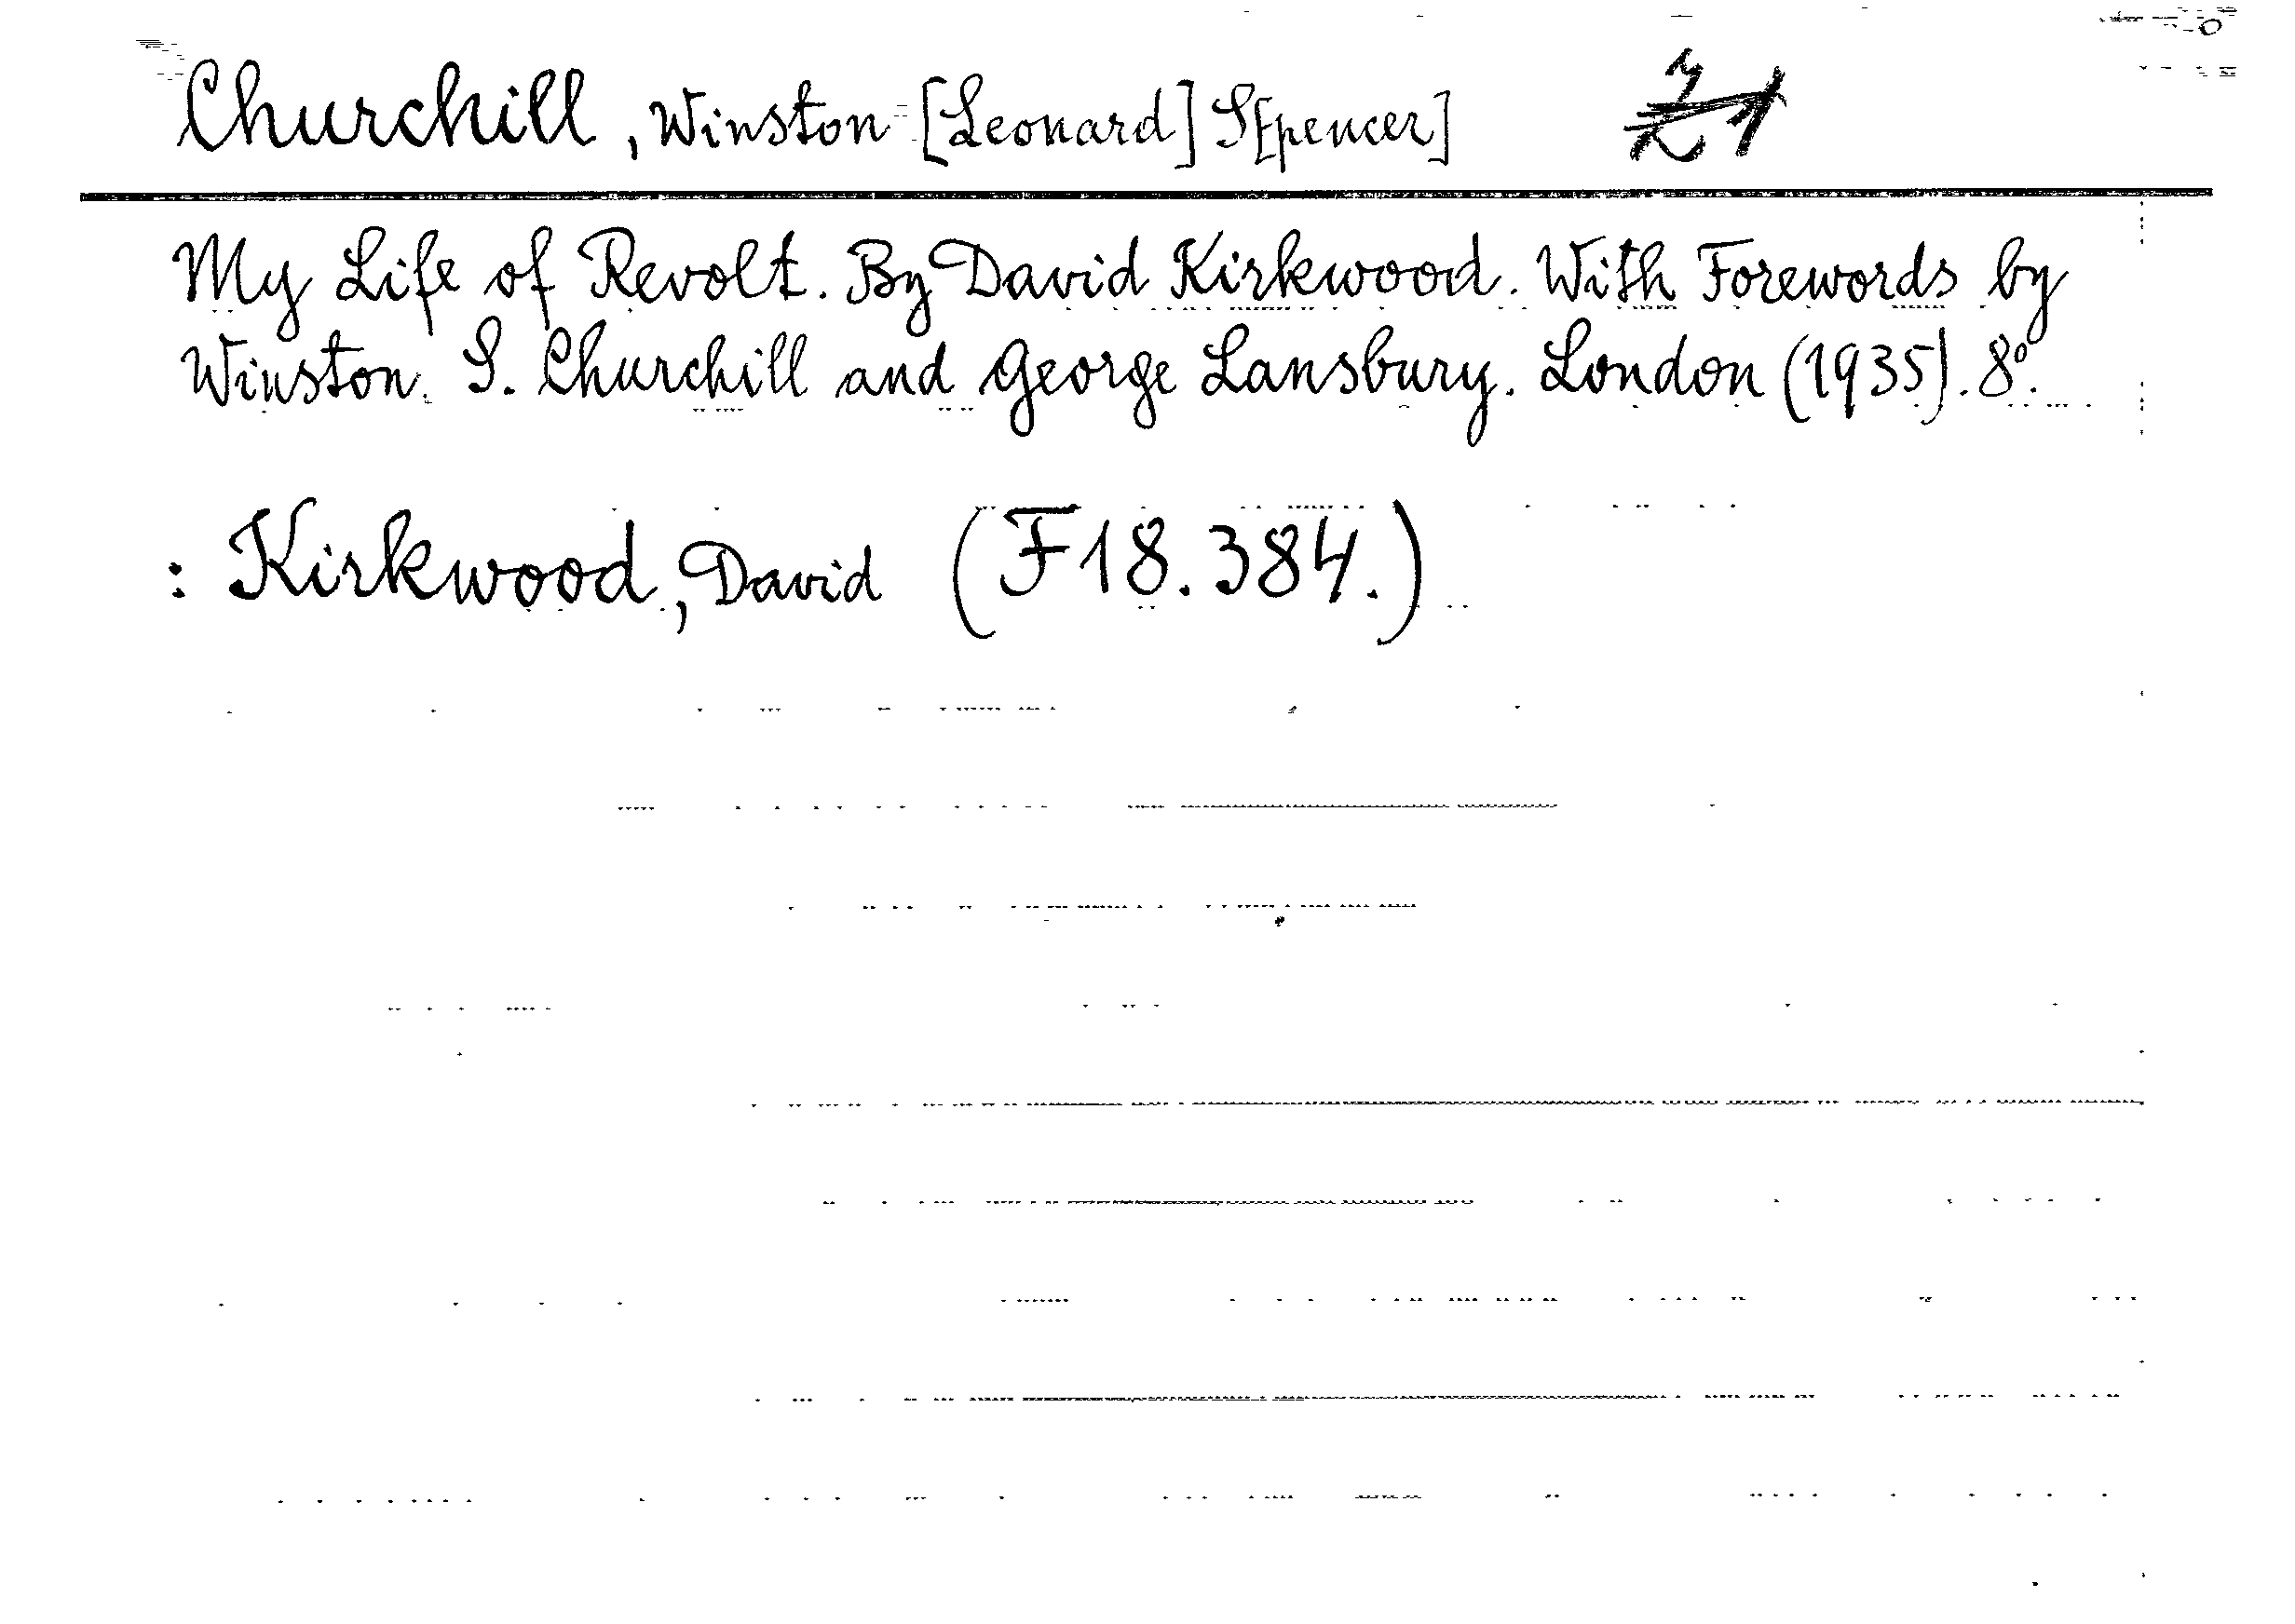 Churchill, Winston [Leonard] S[pencer]
My Life of Revolt. By David Kirkwood. With Forewords by
Winston. S. Churchill and George Lansbury. London (1935). 8°.
: Kirkwood, David (F18.384.)